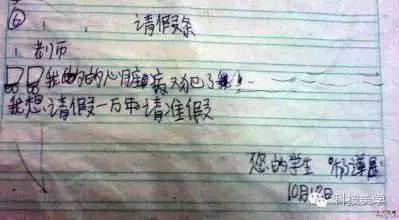 ⑥ 请假条
老师
我的的心脏病又犯了
我想请假一万年请准假
您的学生
10月12日
科技美学